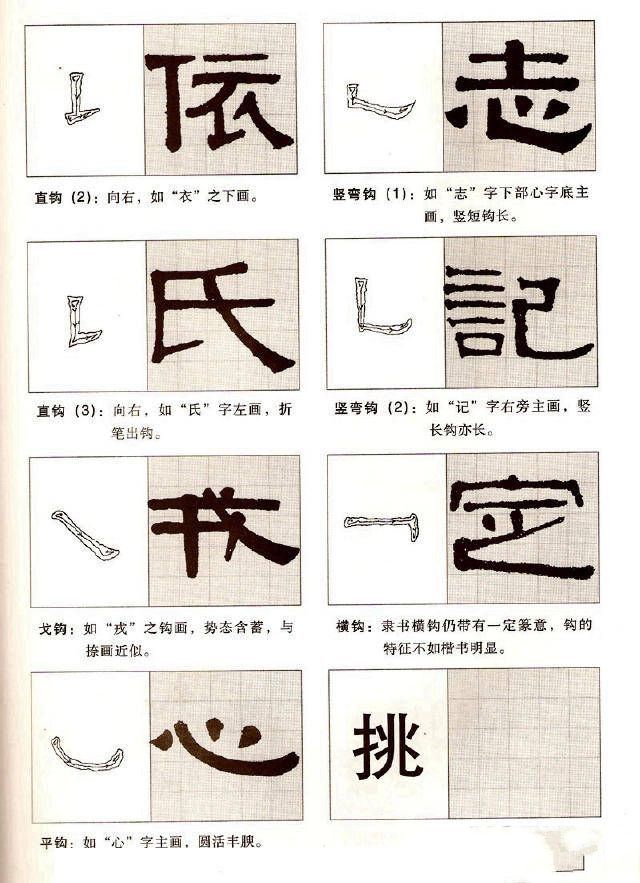 依
直钩（2）：向右，如“衣”之下画。
志
竖弯钩（1）：如“志”字下部心字底主
画，竖短钩长。
氏
直钩（3）：向右，如“氏”字左画，折
笔出钩。
記
竖弯钩（2）：如“记”字右旁主画，竖
长钩亦长。
戎
戈钩：如“戎”之钩画，势态含蓄，与
捺画近似。
定
横钩：隶书横钩仍带有一定篆意，钩的
特征不如楷书明显。
心
平钩：如“心”字主画，圆活丰腴。
挑